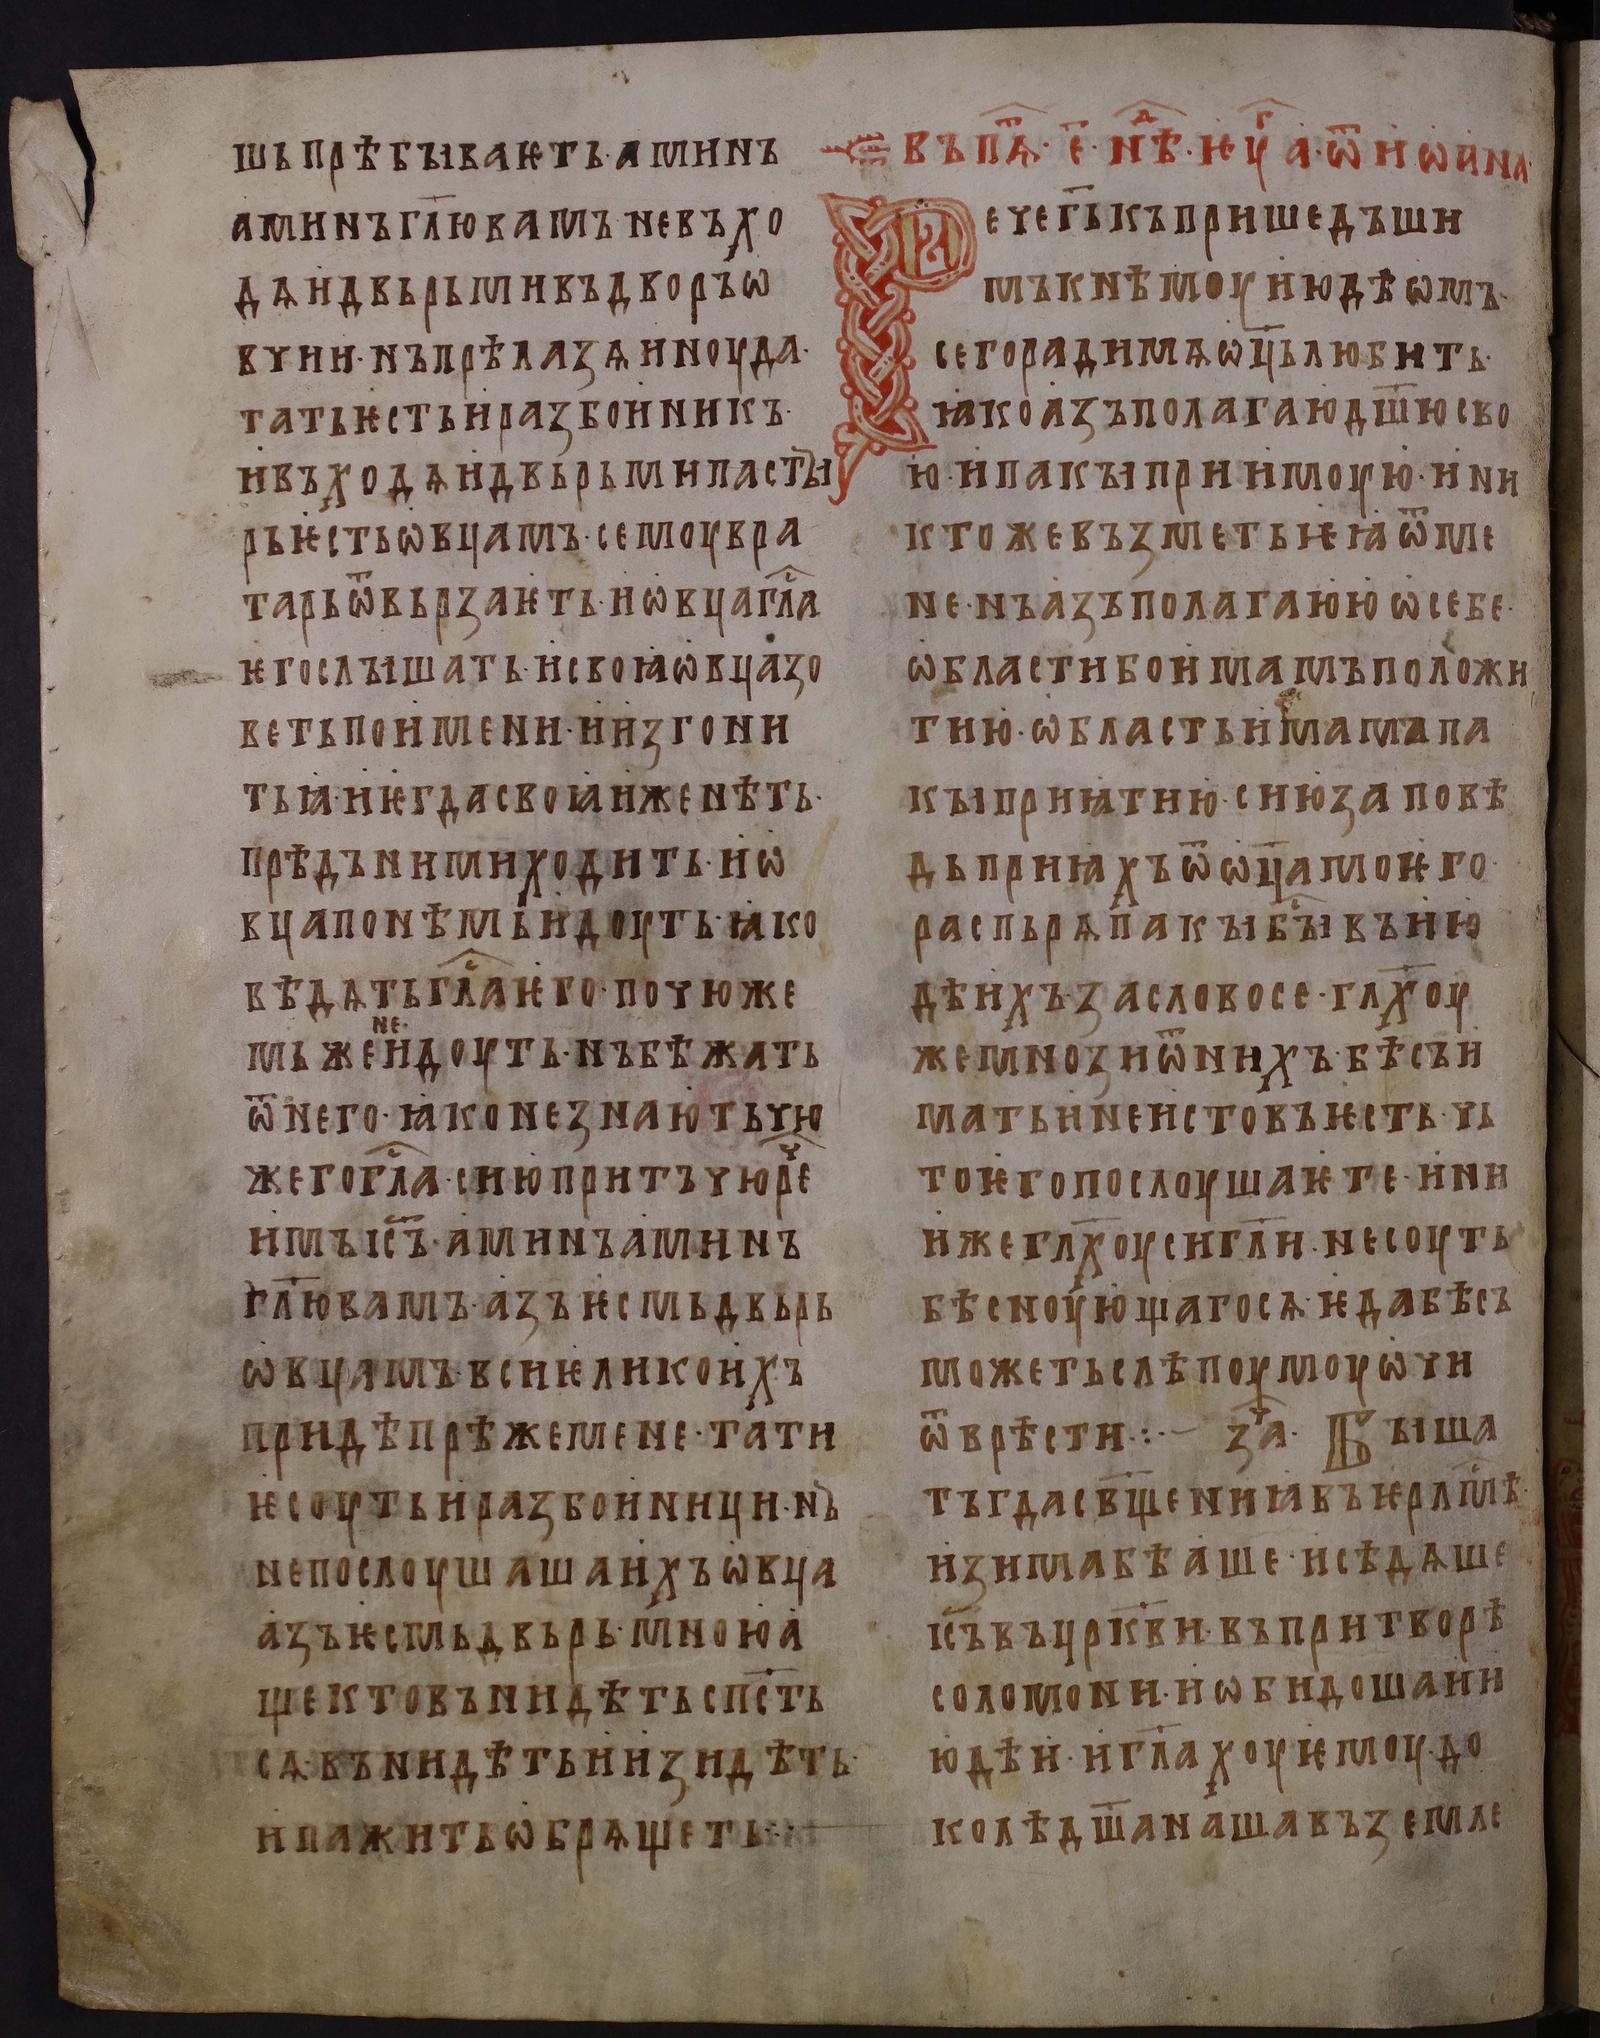 шьпрѣбываѥть·аминъ
аминъгл҃ювамъ·невъхо
дѧидвьрьмивъдворъѡ
вчии·нъпрѣлазѧинꙋда·
татьѥстьиразбоиникъ·
ивъходѧидвьрьмипасты
рьѥстьѡвцамъ·семꙋвра
тарьѿвьрзаѥть·иѡвцагл҃са
ѥгослꙑшать·исвоꙗѡвцазо
ветьпоимени·иизгони
тьꙗ·иѥгдасвоꙗижденѣть·
прѣдънимиходить·иѡ
вцапонѣмьидоуть·ꙗко
вѣдѧтьгл҃саѥго·почюже
мьженеидоуть·нъбѣжать
ѿнего·ꙗконезнаютьчю
жегогл҃са·сиюпритъчюреч҃
имъіс҃ъ·аминъаминъ
гл҃ювамъ·азъѥсмьдвьрь
ѡвцамъ·всиѥликоихъ
придѣпрѣжемене·тати
ѥсоутьиразбоиници·нъ
непослоушашаихъѡвца
азъѥсмьдвьрь·мноюа
щектовънидѣтьспс҃ть
сѧ·вънидѣтьиизидѣть·
ипажитьѡбрѧщеть·
въпѧ҃т·е҃·нѣ҃д·ѥуг҃а·ѿиѡана
Речегь҃къпришедъши
мъкнѣмоуиюдѣѡмъ·
сегорадимѧѡц҃ьлюбить·
ꙗкоазъполагаюдш҃юсво
ю·ипакыприимоую·ини
ктожевъзметьѥꙗѿме
не·нъазъполагаююѡсебе·
ѡбластибоимамъположи
тию·ѡбластьимамапа
кыприꙗтию·сиюзаповѣ
дьприꙗхъѿѡц҃амоѥго·
распьрѧпакыбы҃свъию
дѣихъ·засловосе·глх҃оу
жемнозиѿнихъ·бѣсъи
матьинеистовъѥсть·чь
тоѥгопослоушаѥте·ини
ижеглх҃оусигл҃и·несоуть
бѣсноующагосѧ·ѥдабѣсъ
можетьслѣпоумоуѡчи
ѿврѣсти·:·— за҃ч· Быша
тъгдасвщ҃ениꙗвъѥрлм҃сѣ·
изимабѣаше·исѣдѧше
іс҃ъвъцркв҃и·въпритворѣ
соломони·иѡбидошаии
юдѣи·игл҃ахоуѥмоу·до
колѣдш҃анашавъземле